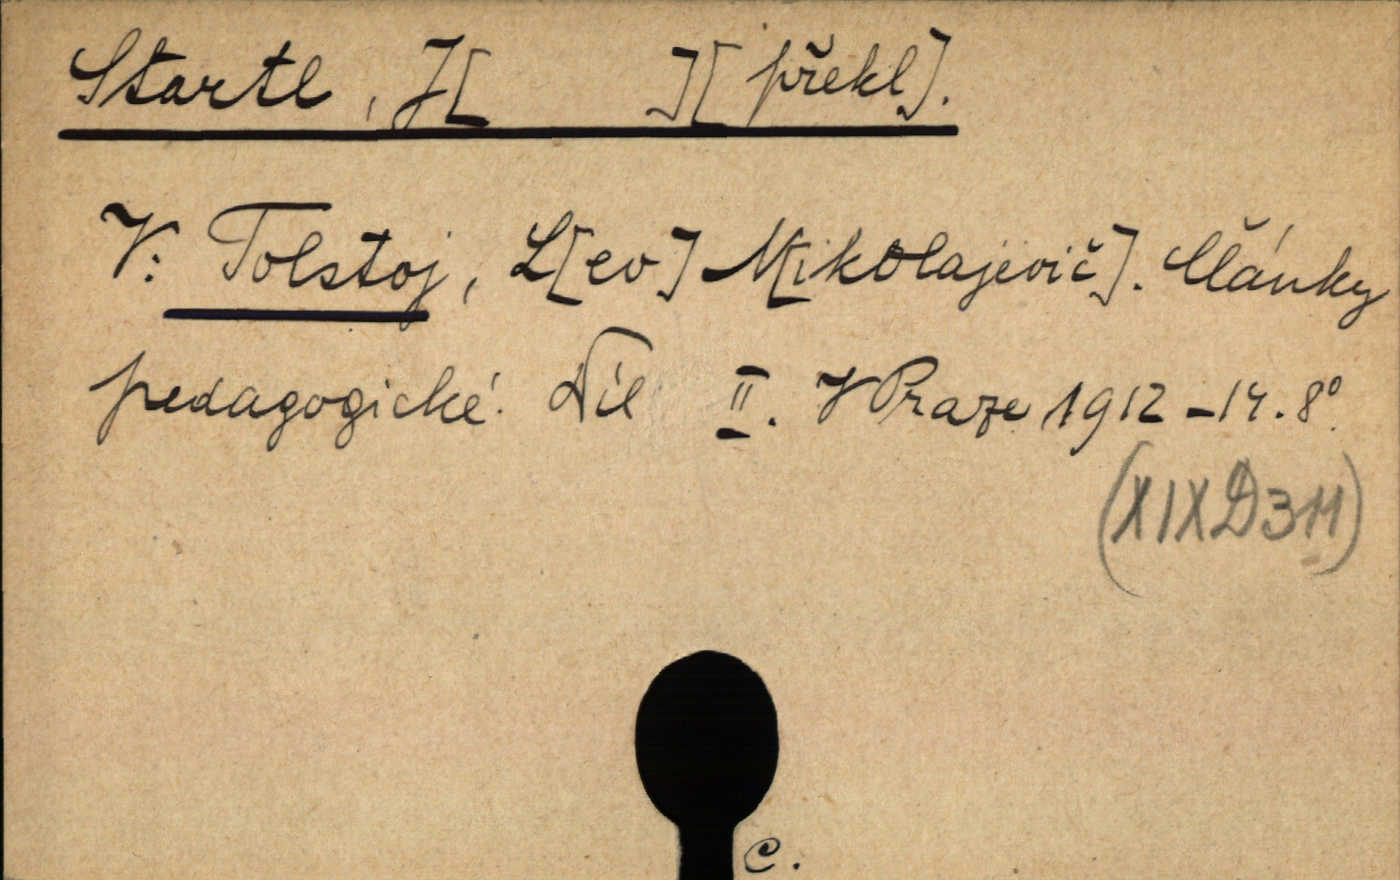 Startl, J[ ][překl].
V: Tolstoj, L[ev] M[ikolajevič]. Články
pedagogické. Díl II. V Praze 1912-14. 8°.
(XIXD311)
C.